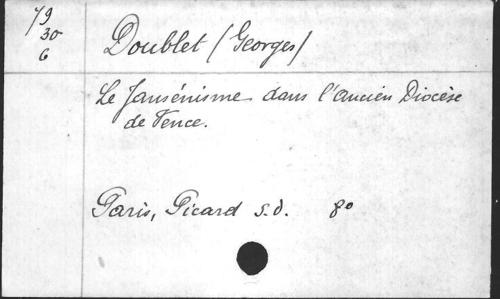 79
30
6
Doublet (Georges)
Le Jansénisme dans l'ancien Diocèse
de Vence.
Paris, Picard s.d. 8º